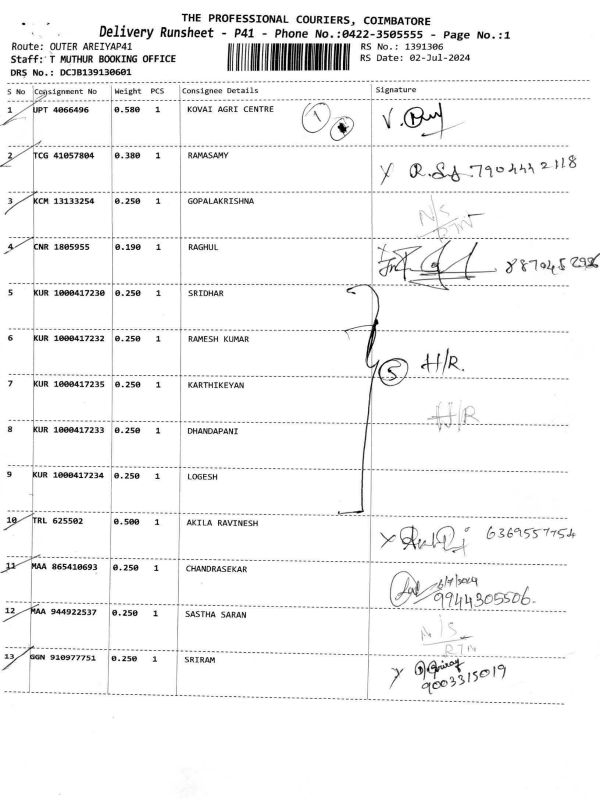 THE PROFESSIONAL COURIERS, COIMBATORE
Delivery Runsheet - P41 - Phone No.:0422-3505555 - Page No.:1
Route: OUTER AREIYAP41 RS No.: 1391306
Staff: T MUTHUR BOOKING OFFICE RS Date: 02-Jul-2024
DRS No.: DCJB139130601
S No Consignment No Weight PCS Consignee Details Signature
1 UPT 4066496 0.580 1 KOVAI AGRI CENTRE 1 V.
2 TCG 41057804 0.380 1 RAMASAMY X 7904442118
3 KCM 13133254 0.250 1 GOPALAKRISHNA N/S
RTN
4 CNR 1805955 0.190 1 RAGHUL
5 KUR 1000417230 0.250 1 SRIDHAR
6 KUR 1000417232 0.250 1 RAMESH KUMAR 5 H/R.
7 KUR 1000417235 0.250 1 KARTHIKEYAN H/R
8 KUR 1000417233 0.250 1 DHANDAPANI
9 KUR 1000417234 0.250 1 LOGESH
10 TRL 625502 0.500 1 AKILA RAVINESH X 6369557754
11 MAA 865410693 0.250 1 CHANDRASEKAR 6/7/2024
9944305506.
12 MAA 944922537 0.250 1 SASTHA SARAN N/S
RTN
13 GGN 910977751 0.250 1 SRIRAM X
9003315019